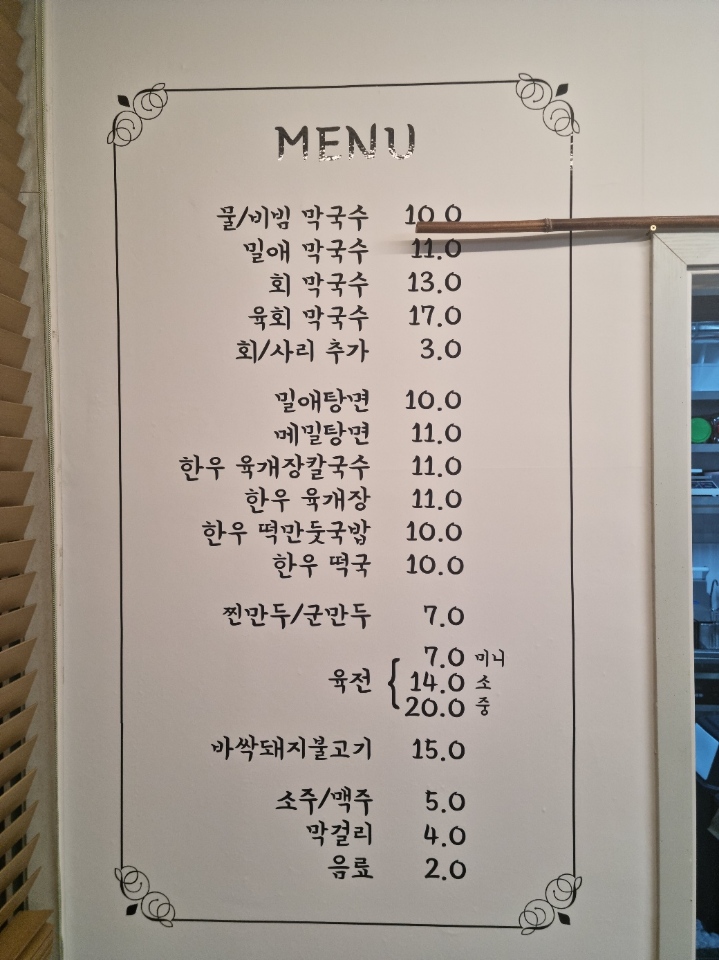 MENU
물/비빔 막국수 10.0
밀애 막국수 11.0
회 막국수 13.0
육회 막국수 17.0
회/사리 추가 3.0
밀애탕면 10.0
메밀탕면 11.0
한우 육개장칼국수 11.0
한우 육개장 11.0
한우 떡만둣국밥 10.0
한우 떡국 10.0
찐만두/군만두 7.0
육전 { 7.0 미니
14.0 소
20.0 중
바싹돼지불고기 15.0
소주/맥주 5.0
막걸리 4.0
음료 2.0